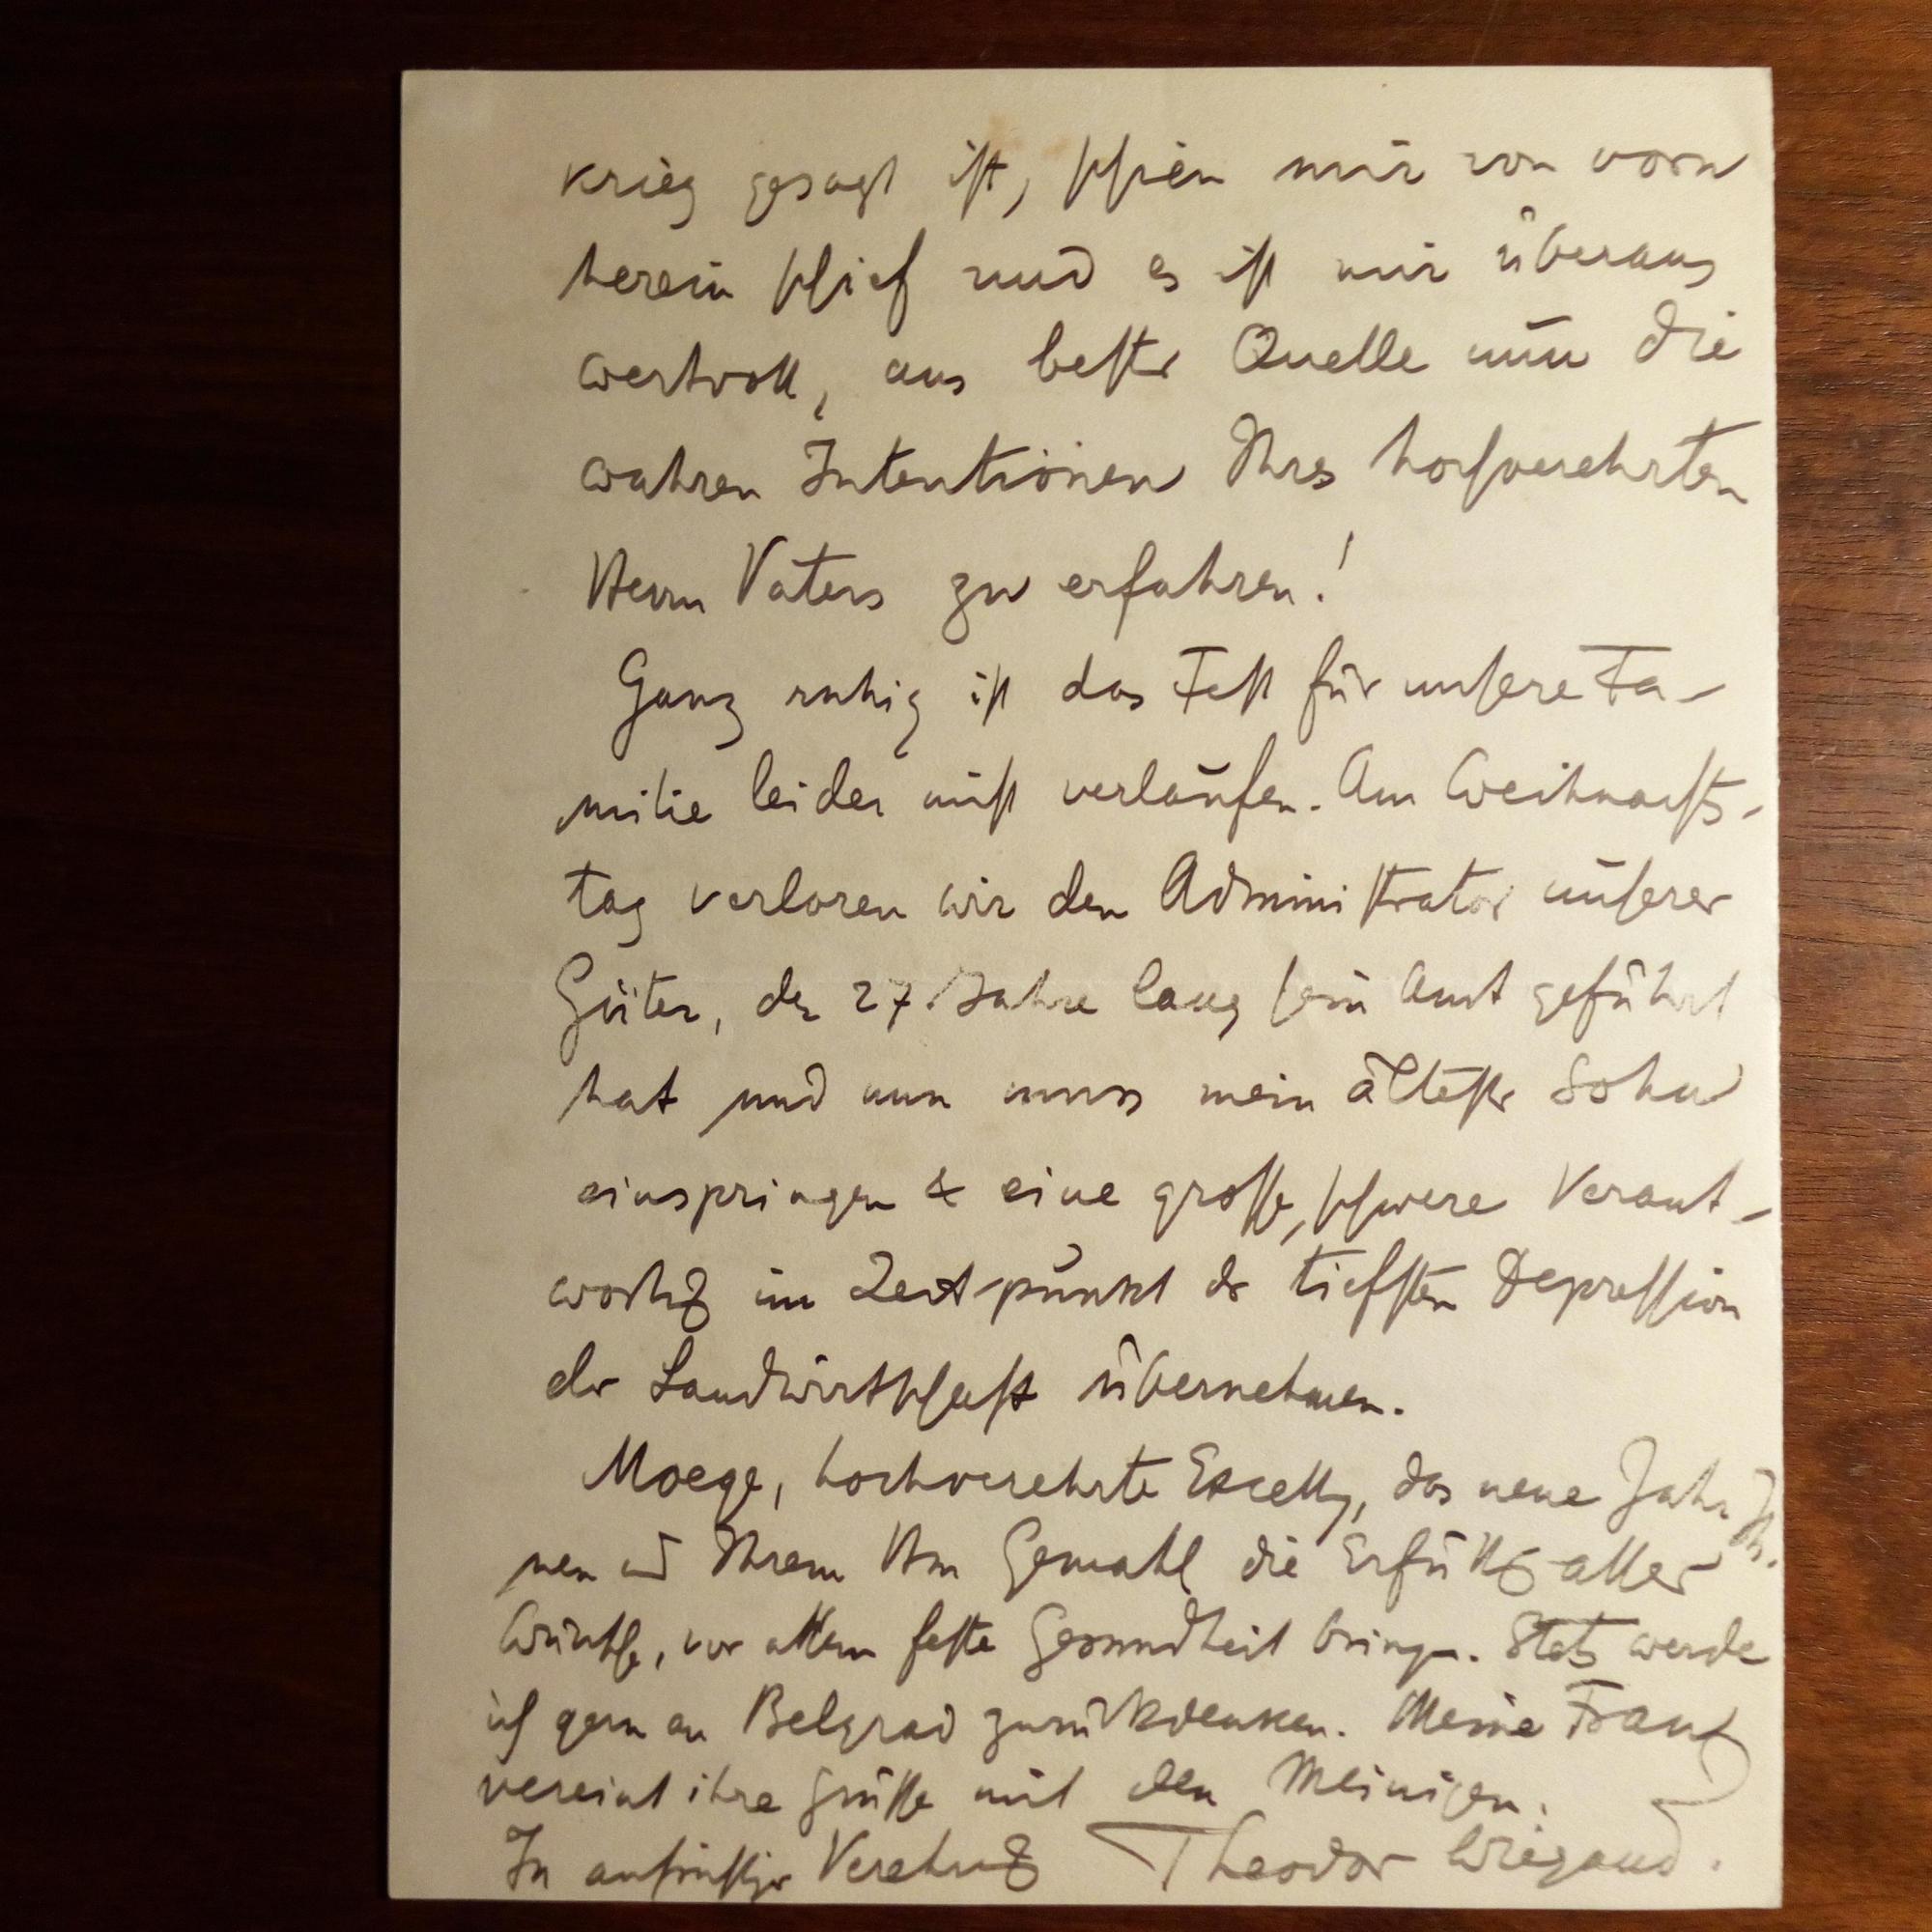 krieg gesagt ist, schien mir von vorn
herein schief und es ist mir überaus
wertvoll, aus bester Quelle nun die
wahren Intentionen Ihres hochverehrten
Herrn Vaters zu erfahren!
Ganz ruhig ist das Fest für unsere Fa-
milie leider nicht verlaufen. Am Weihnachts-
tag verloren wir den Administrator unserer
Güter, der 27 Jahre lang sein Amt geführt
hat und nun muss mein ältester Sohn
einspringen & eine grosse, schwere Verant-
wortg im Zeitpunkt der tiefsten Depression
der Landwirtschaft übernehmen.
Moege, hochverehrte Excellz, das neue Jahr Ih-
nen und Ihrem Hrn Gemahl die Erfüllg aller
Wünsche, vor allem feste Gesundheit bringen. Stets werde
ich gern an Belgrad zurückdenken. Meine Frau
vereint ihre Grüsse mit den Meinigen.
In aufrichtiger Verehrg Theodor Wiegand.